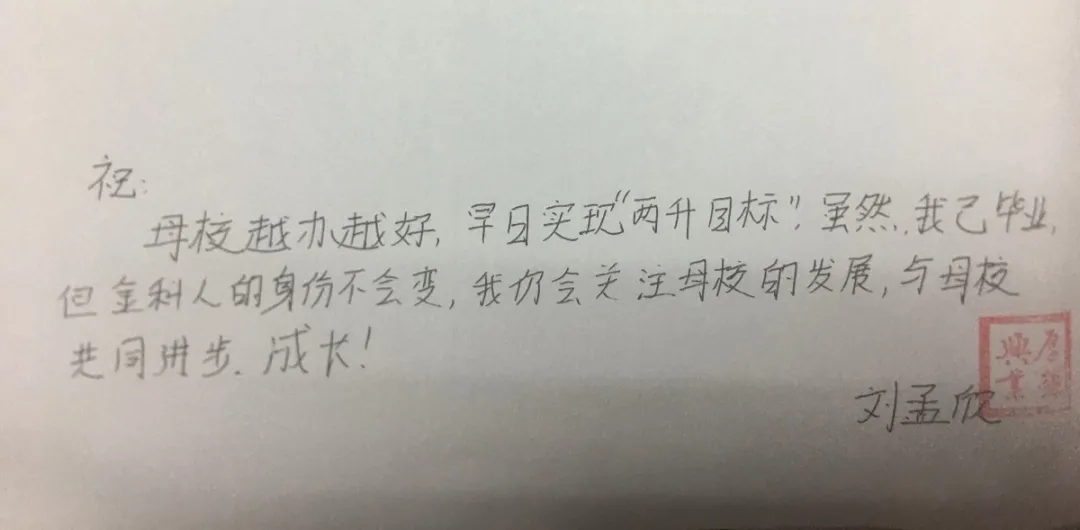 祝:
母校越办越好,早日实现“两升目标”.虽然,我已毕业,
但金科人的身份不会变,我仍会关注母校的发展,与母校
共同进步.成长!
刘孟欣
興業